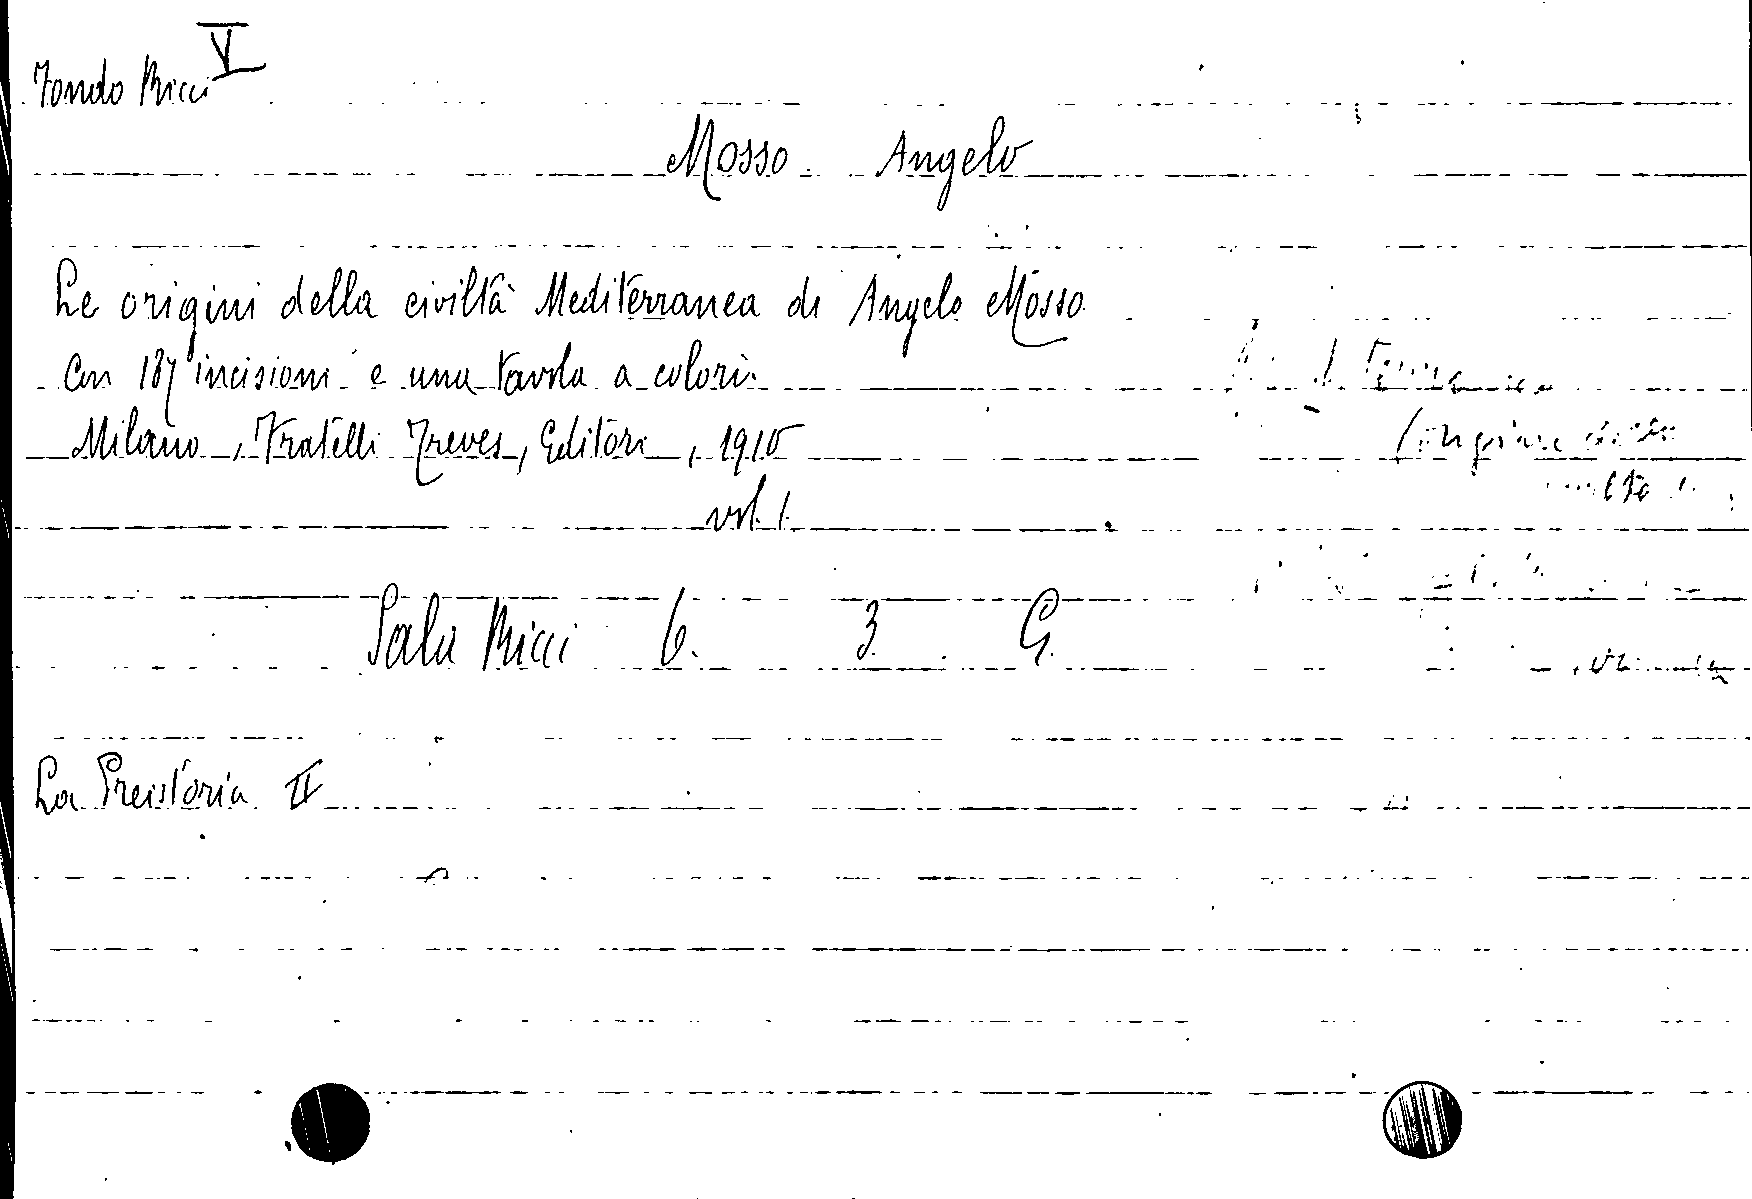 Fondo Ricci V
Mosso Angelo
Le origini della civiltà Mediterranea di Angelo Mosso
Con 187 incisioni e una tavola a colori.
Milano, Fratelli Treves, Editori, 1910
vol. 1.
Sala Ricci 6. 3 G.
La Preistoria II